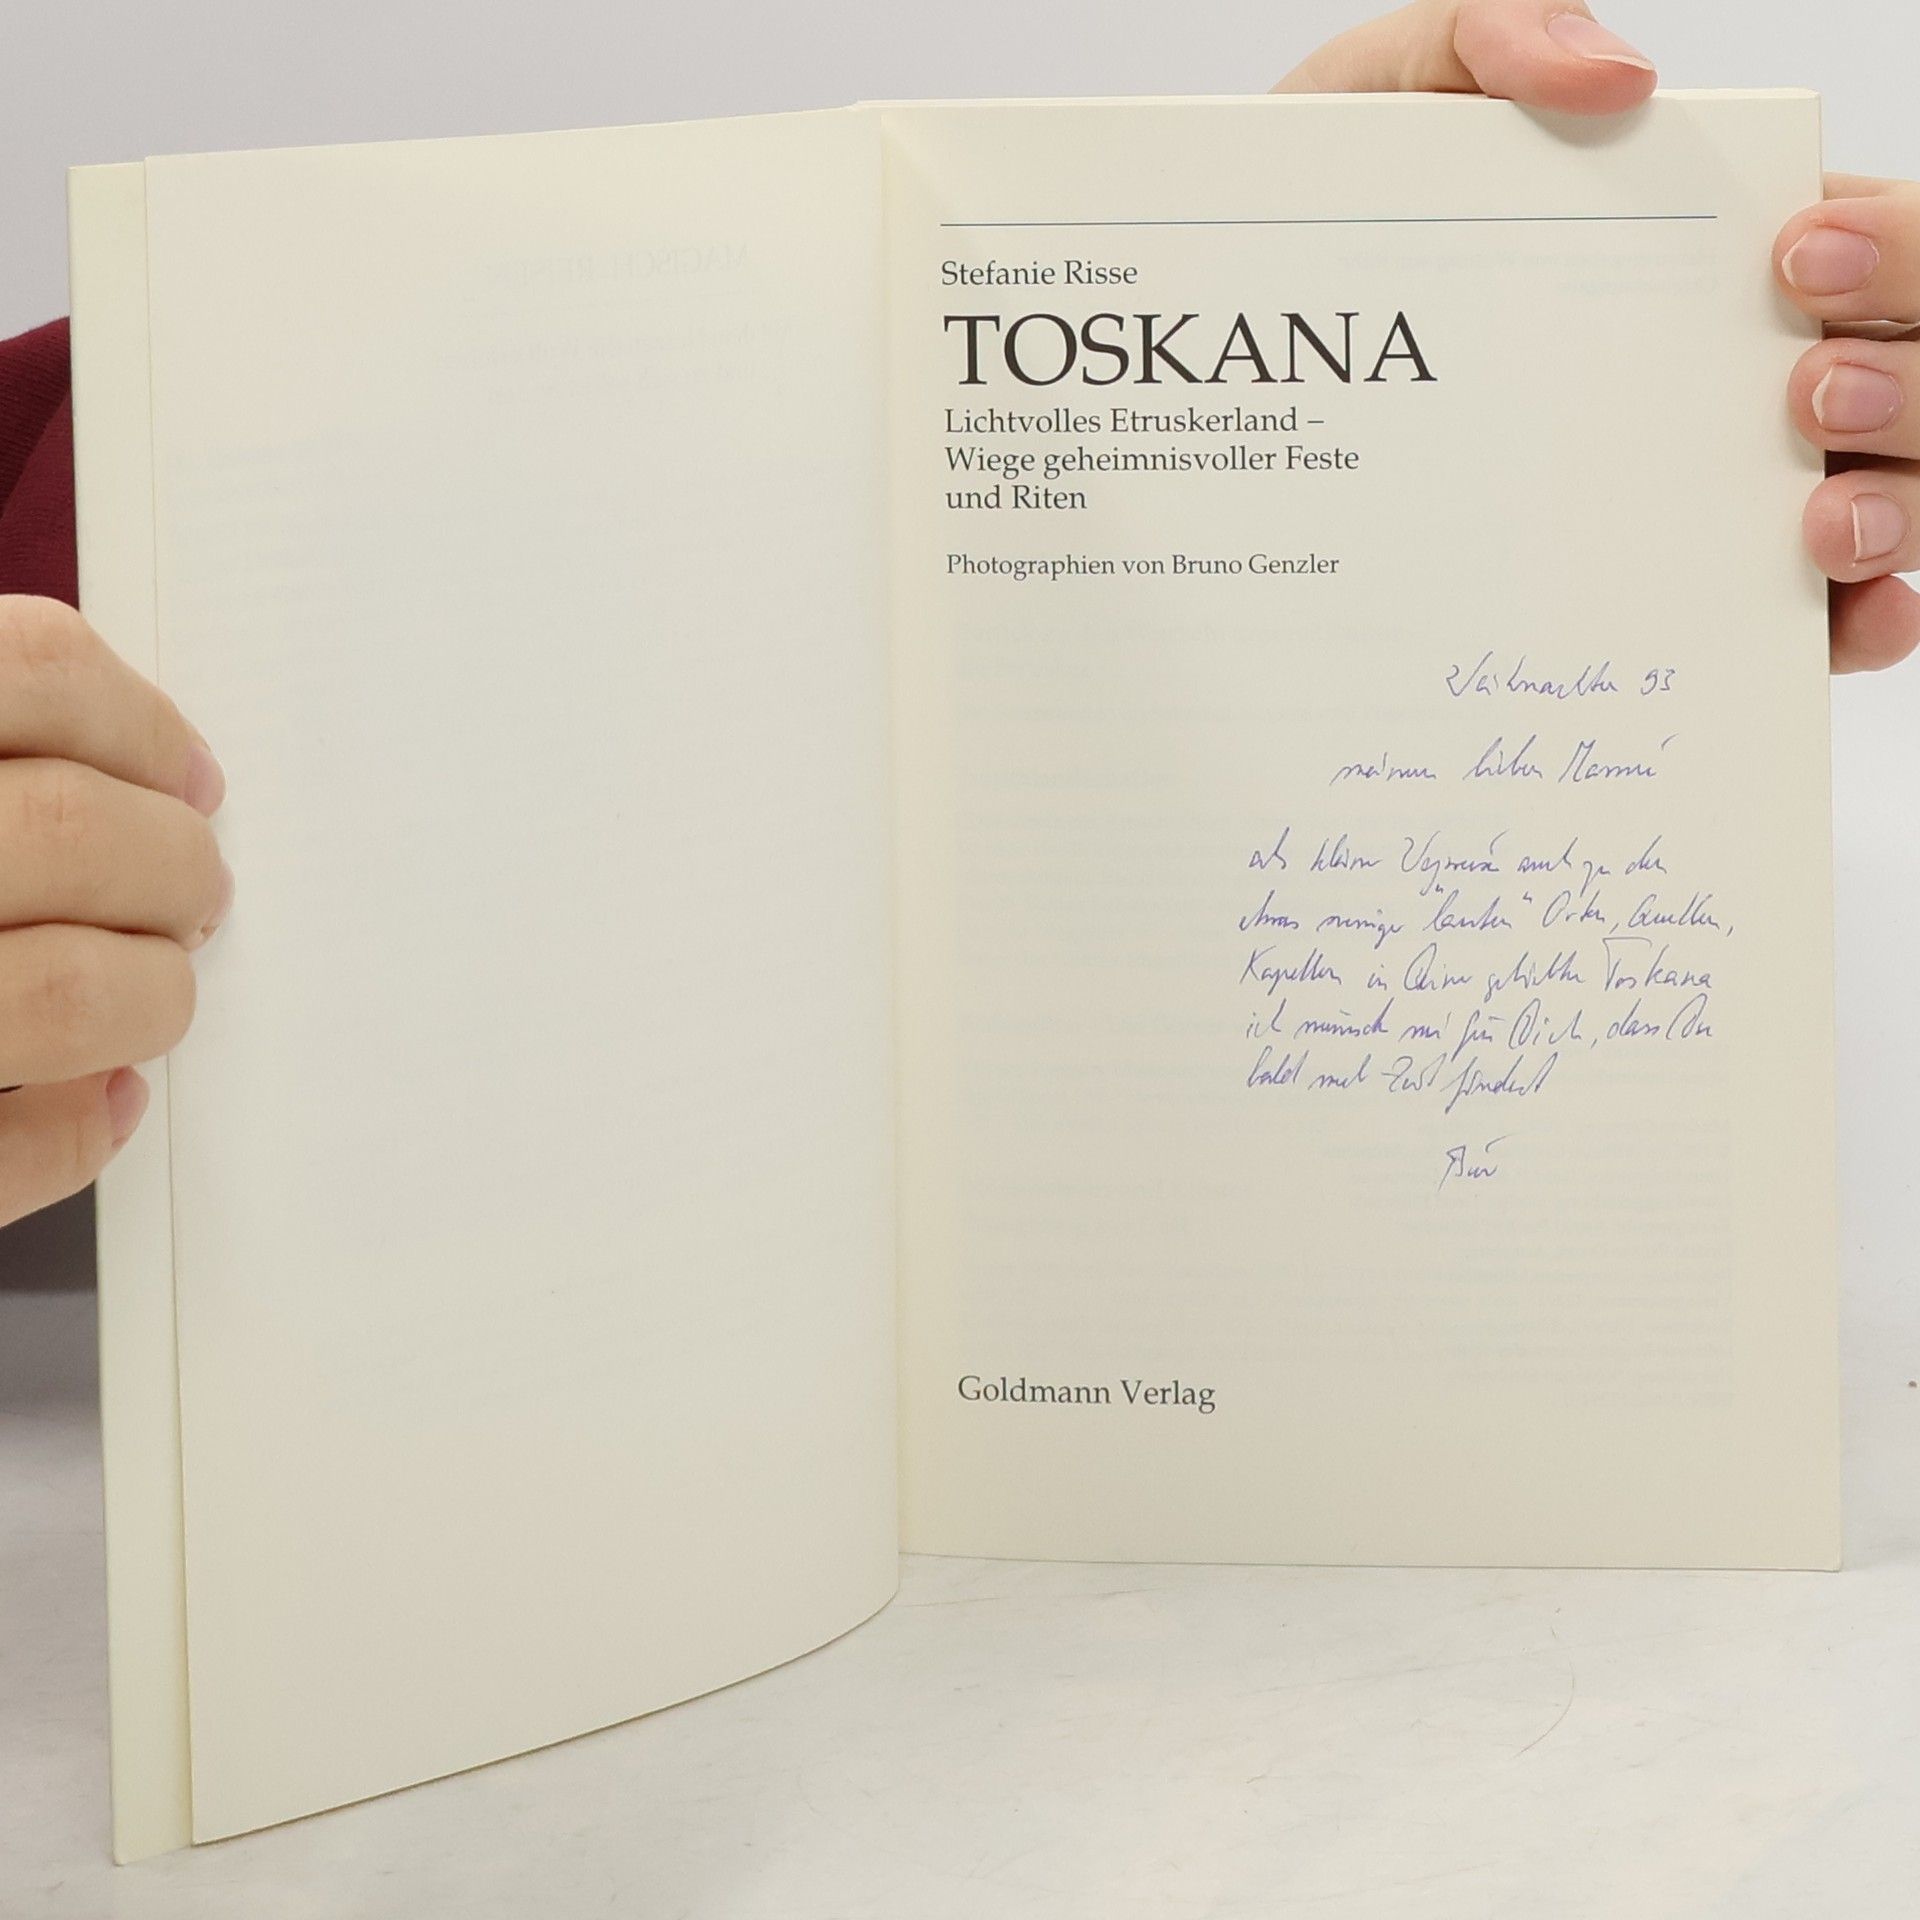 Stefanie Risse
TOSKANA
Lichtvolles Etruskerland –
Wiege geheimnisvoller Feste
und Riten
Photographien von Bruno Genzler
Weihnachten 93
meinem lieben
als kleiner auch zu den
etwas weniger "lauten" Orten, Quellen,
Kapellen in Deiner geliebten Toskana
ich wünsch mir für Dich, dass Du
bald mehr Zeit findest
Goldmann Verlag